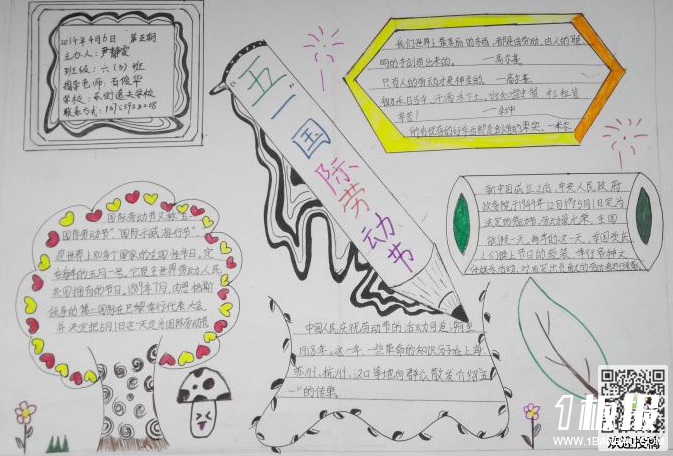 2014年4月6日 第五期
主办人:尹静雯
班级:六(3)班
指导老师:石俊华
学校:东街逸夫学校
联系方式:
五一国际劳动节
我们世界上最美丽的东西,都是由劳动,由人的聪
明的手创造出来的。 —高尔基
只有人的劳动才是神圣的 —高尔基
锄禾日当午,汗滴禾下土。谁知盘中餐 粒粒皆
辛苦!
国际劳动节又称"五一
国际劳动节""国际示威游行节"
是世界上80多个国家的全国性节日。定
在每年的五月一号。它是全世界劳动人民
共同拥有的节日。1889年7月,由恩格斯
领导的第一国际在巴黎举行代表大会。
并决定把5月1日这一天定为国际劳动节
新中国成立之后,中央人民政府
政务院于1949年12月将5月1日定为
法定的劳动节,
放假一天。每年的这一天,举国欢庆。
人们换上节日的盛装
中国人民庆祝劳动节的活动可追溯至
1918年。这一年,一些革命的知识分子在上海
苏州、杭州、汉口等地向群众散发介绍"五
一"的传单。
1板报
WWW.1BANBAO.COM
欢迎投稿